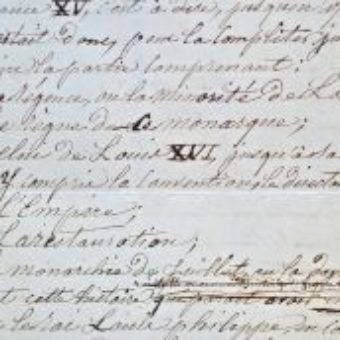 XV, c'est à dire, jusqu'en
était donc, pour la complèter,
la partie comprenant:
régence, ou la minorité de
règne de ce monarque;
celui de Louis XVI, jusqu'à sa
y compris la Convention, le direct
L'Empire;
La restauration;
monarchie de juillet, ou la
cette histoire
le roi Louis philippe,